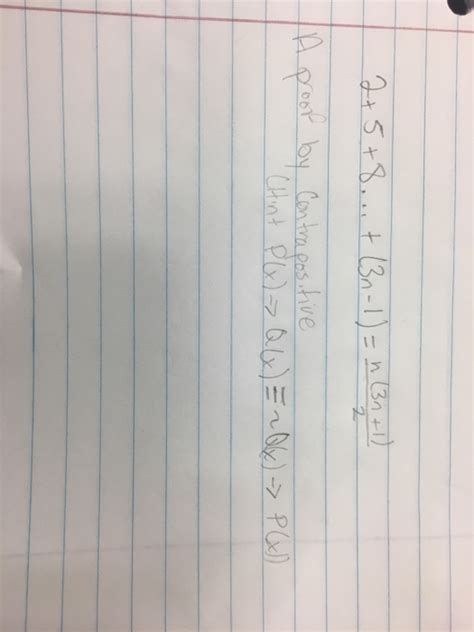 2+5+8...+(3n-1)=n(3n+1)/2
A proof by Contrapositive
(Hint P(x)->Q(x)≡~Q(x)->P(x))